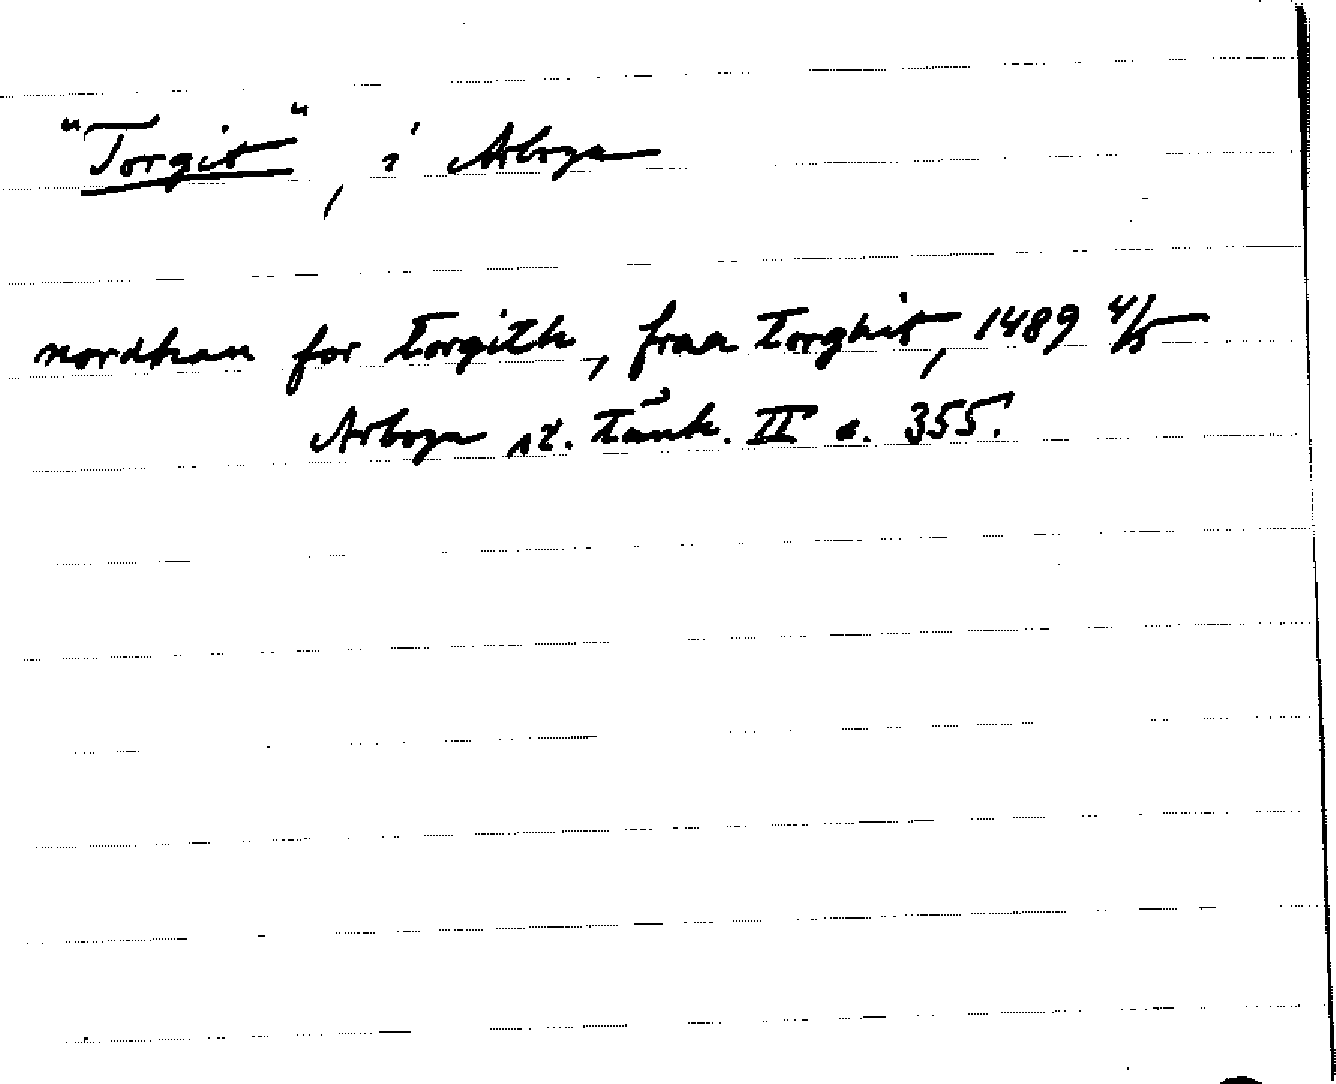 "Torgit", i Arboga
nordhan for torgith, fraa torghit, 1489 4/5
Arboga st. tänk. II s. 355.